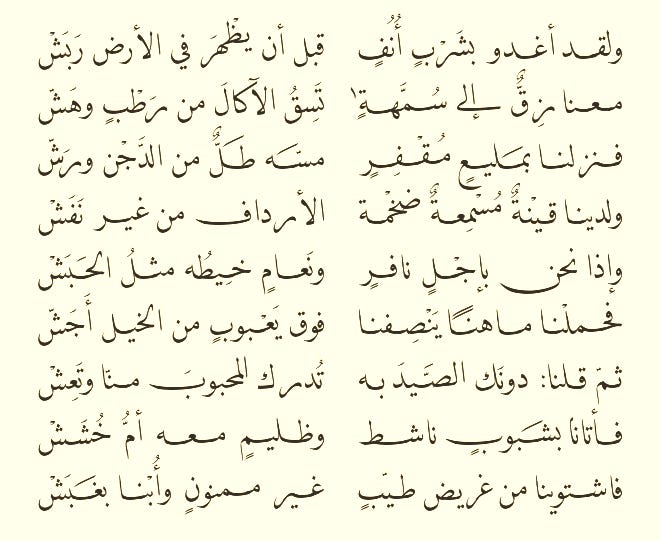 ولقد أغدو بشَرْبٍ أُنُفٍ قبل أن يظْهرَ في الأرض رَبَشْ
معنا زِقٌّ إلى سُمَّهةٍ تَسِقُ الآكالَ من رَطْبٍ وهَشّ
فنزلنا بمَليعٍ مُقْفِرٍ مسّه طَلٌّ من الدَّجْن ورَشّ
ولدينا قيْنةٌ مُسْمِعةٌ ضخْمة الأرداف من غير نَفَشْ
وإذا نحن بإجْلٍ نافرٍ ونَعامٍ خيطُه مثلُ الحَبَشْ
فحملْنا ماهنًا يَنْصِفنا فوق يَعْبوبٍ من الخيل أَجَشّ
ثمّ قلنا: دونَك الصَّيدَ به تُدرك المحبوبَ منّا وتَعِشْ
فأتانا بشَبوبٍ ناشط وظليمٍ معه أمُّ خُشَشْ
فاشتوينا من غريض طيّبٍ غير ممنونٍ وأُبْنا بغَبَشْ